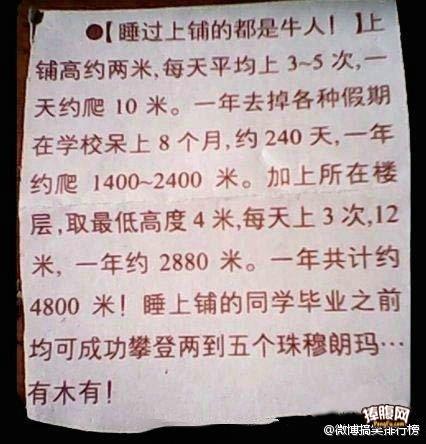 ●【睡过上铺的都是牛人！】上
铺高约两米,每天平均上 3~5 次,一
天约爬 10 米。一年去掉各种假期
在学校呆上 8 个月,约 240 天,一年
约爬 1400~2400 米。加上所在楼
层,取最低高度 4 米,每天上 3 次,12
米, 一年约 2880 米。一年共计约
4800 米！睡上铺的同学毕业之前
均可成功攀登两到五个珠穆朗玛…
有木有！
捧腹网
PengFu.com
@微博搞笑排行榜